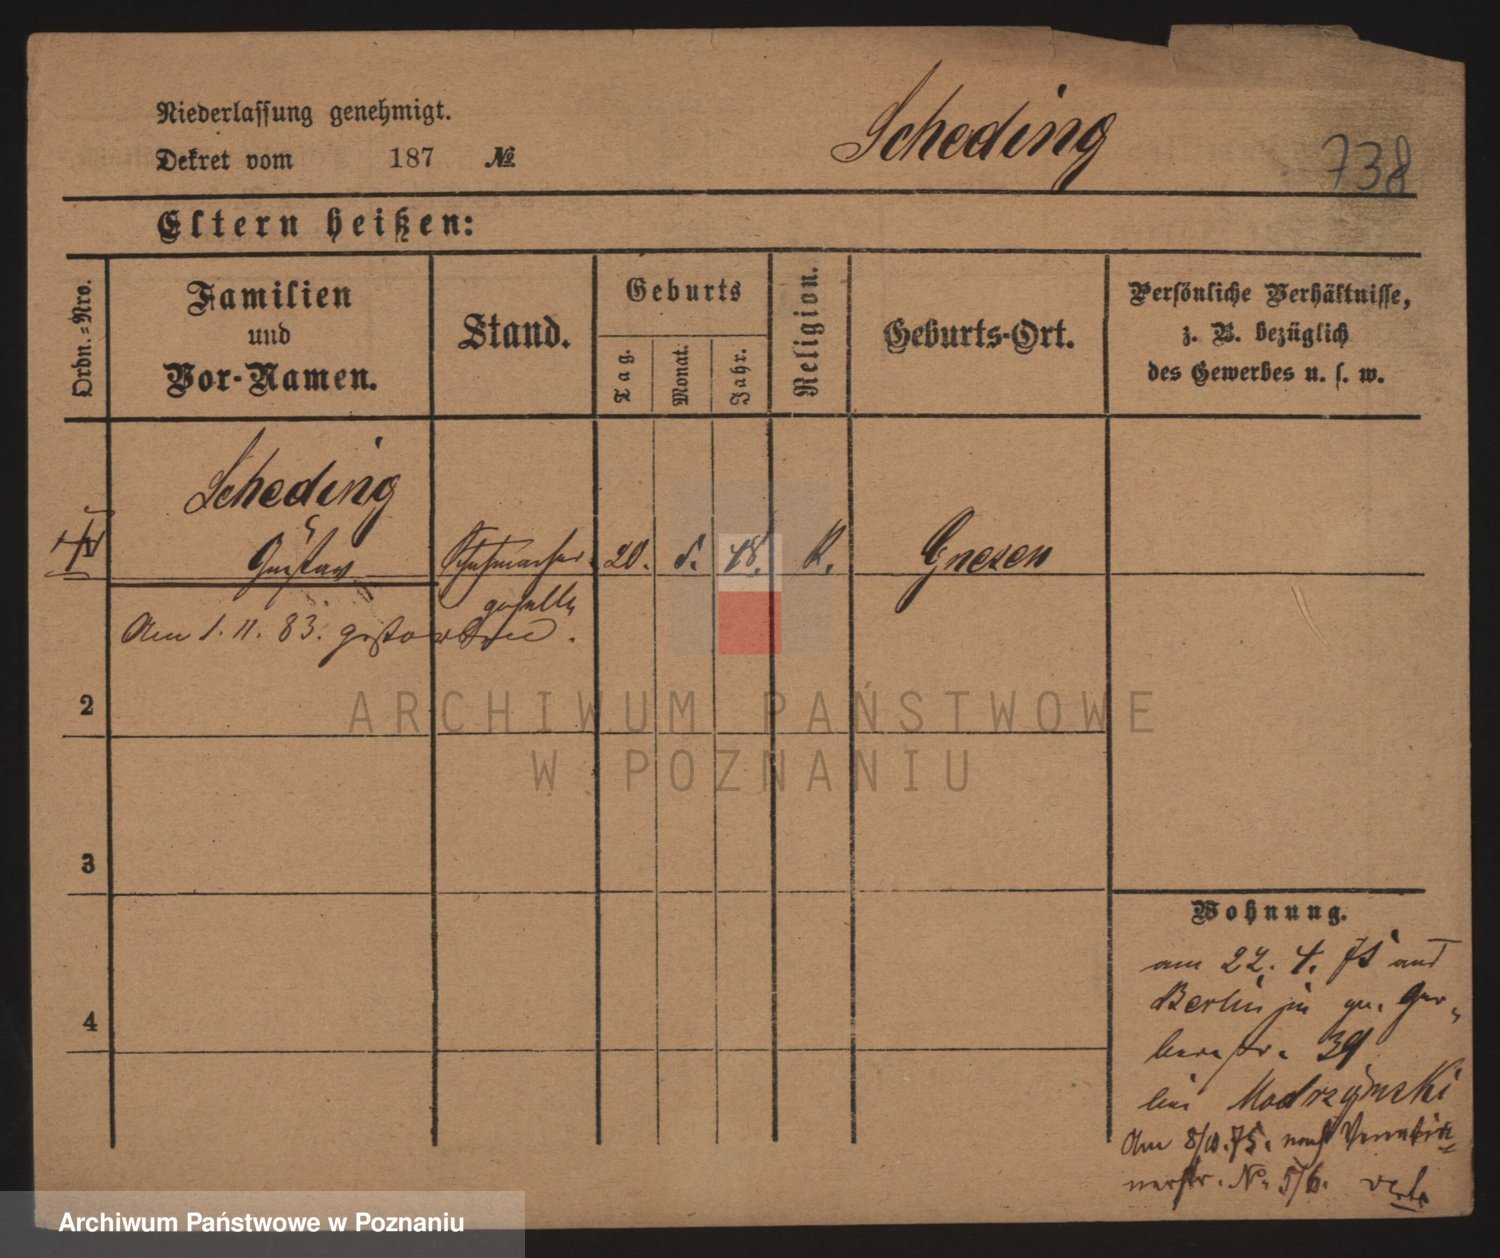 Niederlassung genehmigt.
Dekret vom 187 №
Scheding
738
Eltern heißen:
Ordn.=Nro.
Familien
und
Vor-Namen.
Stand.
Geburts
Tag.
Monat.
Jahr.
Religion.
Geburts-Ort.
Persönliche Verhältnisse,
z. B. bezüglich
des Gewerbes u. s. w.
Scheding
Gustav
Schuhmacher-
geselle
20.
K.
Gnesen
Am 1. 11. 83. gestorben.
2
3
4
Wohnung.
am 22. 4. 75 aus
Berlin in
39
bei Modrzynski
Am 8/10. 75. nach
No. 5/6. verte
ARCHIWUM PAŃSTWOWE
W POZNANIU
Archiwum Państwowe w Poznaniu